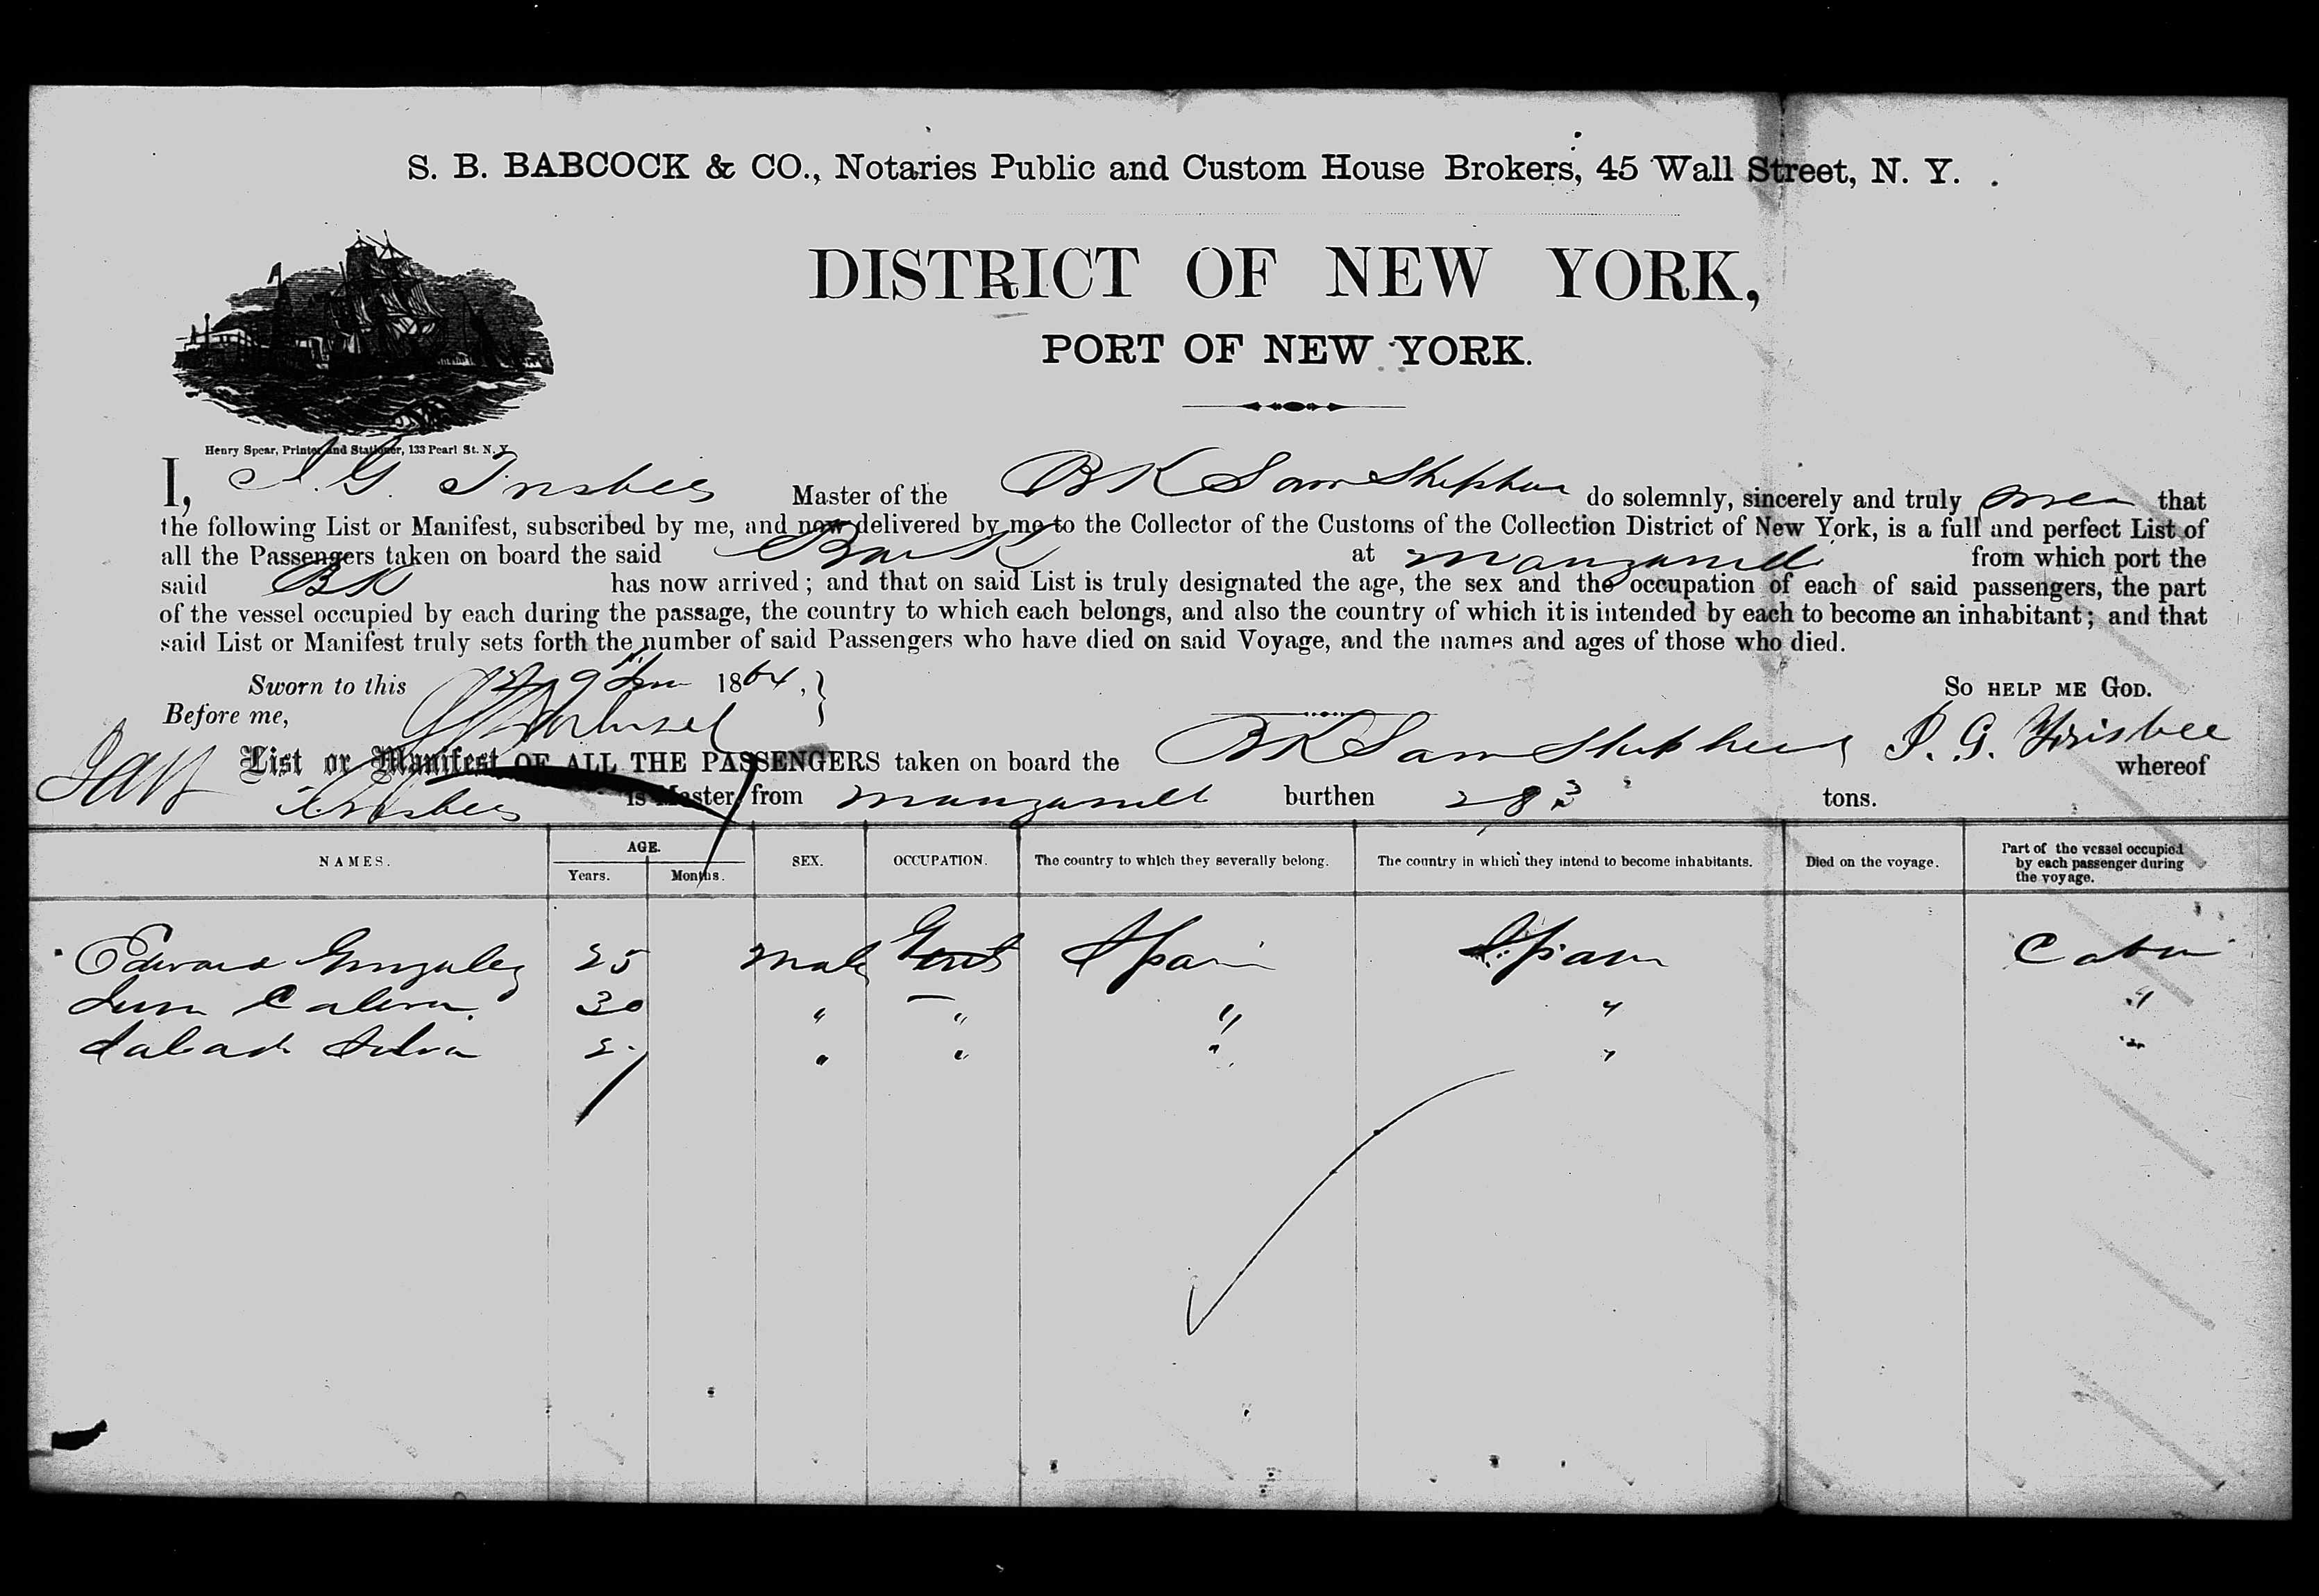 S. B. BABCOCK & CO., Notaries Public and Custom House Brokers, 45 Wall Street, N. Y.
DISTRICT OF NEW YORK,
PORT OF NEW YORK.
Henry Spear, Printer and Stationer, 133 Pearl St. N. Y.
I, J. G. Frisbee Master of the BK Sam Shephen do solemnly, sincerely and truly swear that
the following List or Manifest, subscribed by me, and now delivered by me to the Collector of the Customs of the Collection District of New York, is a full and perfect List of
all the Passengers taken on board the said Bark at Manzanill from which port the
said BK has now arrived; and that on said List is truly designated the age, the sex and the occupation of each of said passengers, the part
of the vessel occupied by each during the passage, the country to which each belongs, and also the country of which it is intended by each to become an inhabitant; and that
said List or Manifest truly sets forth the number of said Passengers who have died on said Voyage, and the names and ages of those who died.
Sworn to this 9 1864, So HELP ME GOD.
Before me,
J. G. Frisbee
List or Manifest OF ALL THE PASSENGERS taken on board the BK Sam Shephens whereof
Frisbee is Master, from Manzanill burthen 283 tons.
NAMES. AGE. SEX. OCCUPATION. The country to which they severally belong. The country in which they intend to become inhabitants. Died on the voyage. Part of the vessel occupied by each passenger during the voyage.
Years. Months.
Edward Gonzalez 25 Male Gent Spain Spain Cabin
Calera 30 " " " " "
Silva " " " " "